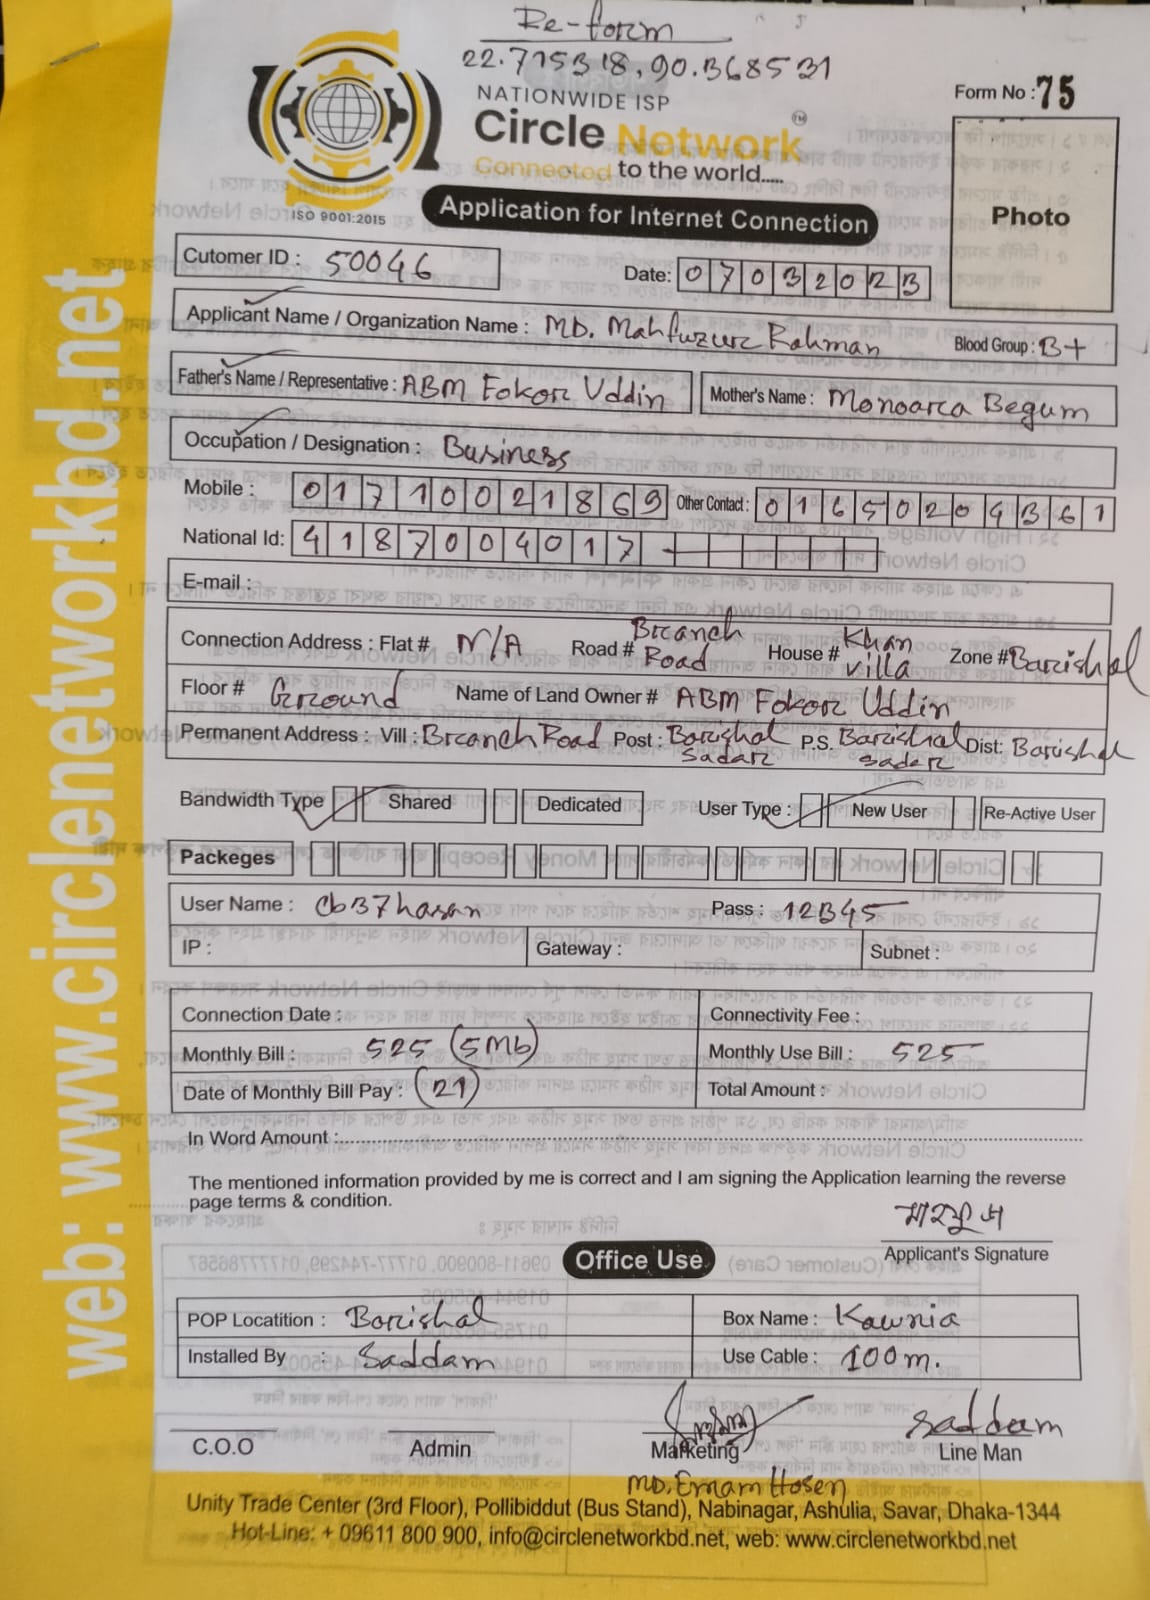 Re-form
22.775318, 90.368531
NATIONWIDE ISP
Form No : 75
Circle Network TM
Connected to the world.....
ISO 9001:2015
Application for Internet Connection
Photo
Cutomer ID : 50046
Date: 07032023
Applicant Name / Organization Name : MD. Mahfuzur Rahman Blood Group : B+
Father's Name / Representative : ABM Fokor Uddin Mother's Name : Monoara Begum
Occupation / Designation : Business
Mobile : 01710021869 Other Contact : 01650204361
National Id: 4187004017
E-mail :
Connection Address : Flat # N/A Road # Branch Road House # Khan Villa Zone # Barishal
Floor # Ground Name of Land Owner # ABM Fokor Uddin
Permanent Address : Vill : Branch Road Post : Barishal Sadar P.S. Barishal Sadar Dist: Barishal
Bandwidth Type Shared Dedicated User Type : New User Re-Active User
Packeges
User Name : cb37hasan Pass : 12345
IP : Gateway : Subnet :
Connection Date : Connectivity Fee :
Monthly Bill : 525 (5Mb) Monthly Use Bill : 525
Date of Monthly Bill Pay : (21) Total Amount :
In Word Amount :
The mentioned information provided by me is correct and I am signing the Application learning the reverse
page terms & condition.
মাহফুজ
Applicant's Signature
Office Use
POP Locatition : Barishal Box Name : Kawnia
Installed By : Saddam Use Cable : 100m.
saddam
C.O.O Admin Marketing Line Man
MD. Emam Hosen
Unity Trade Center (3rd Floor), Pollibiddut (Bus Stand), Nabinagar, Ashulia, Savar, Dhaka-1344
Hot-Line: + 09611 800 900, info@circlenetworkbd.net, web: www.circlenetworkbd.net
web: www.circlenetworkbd.net